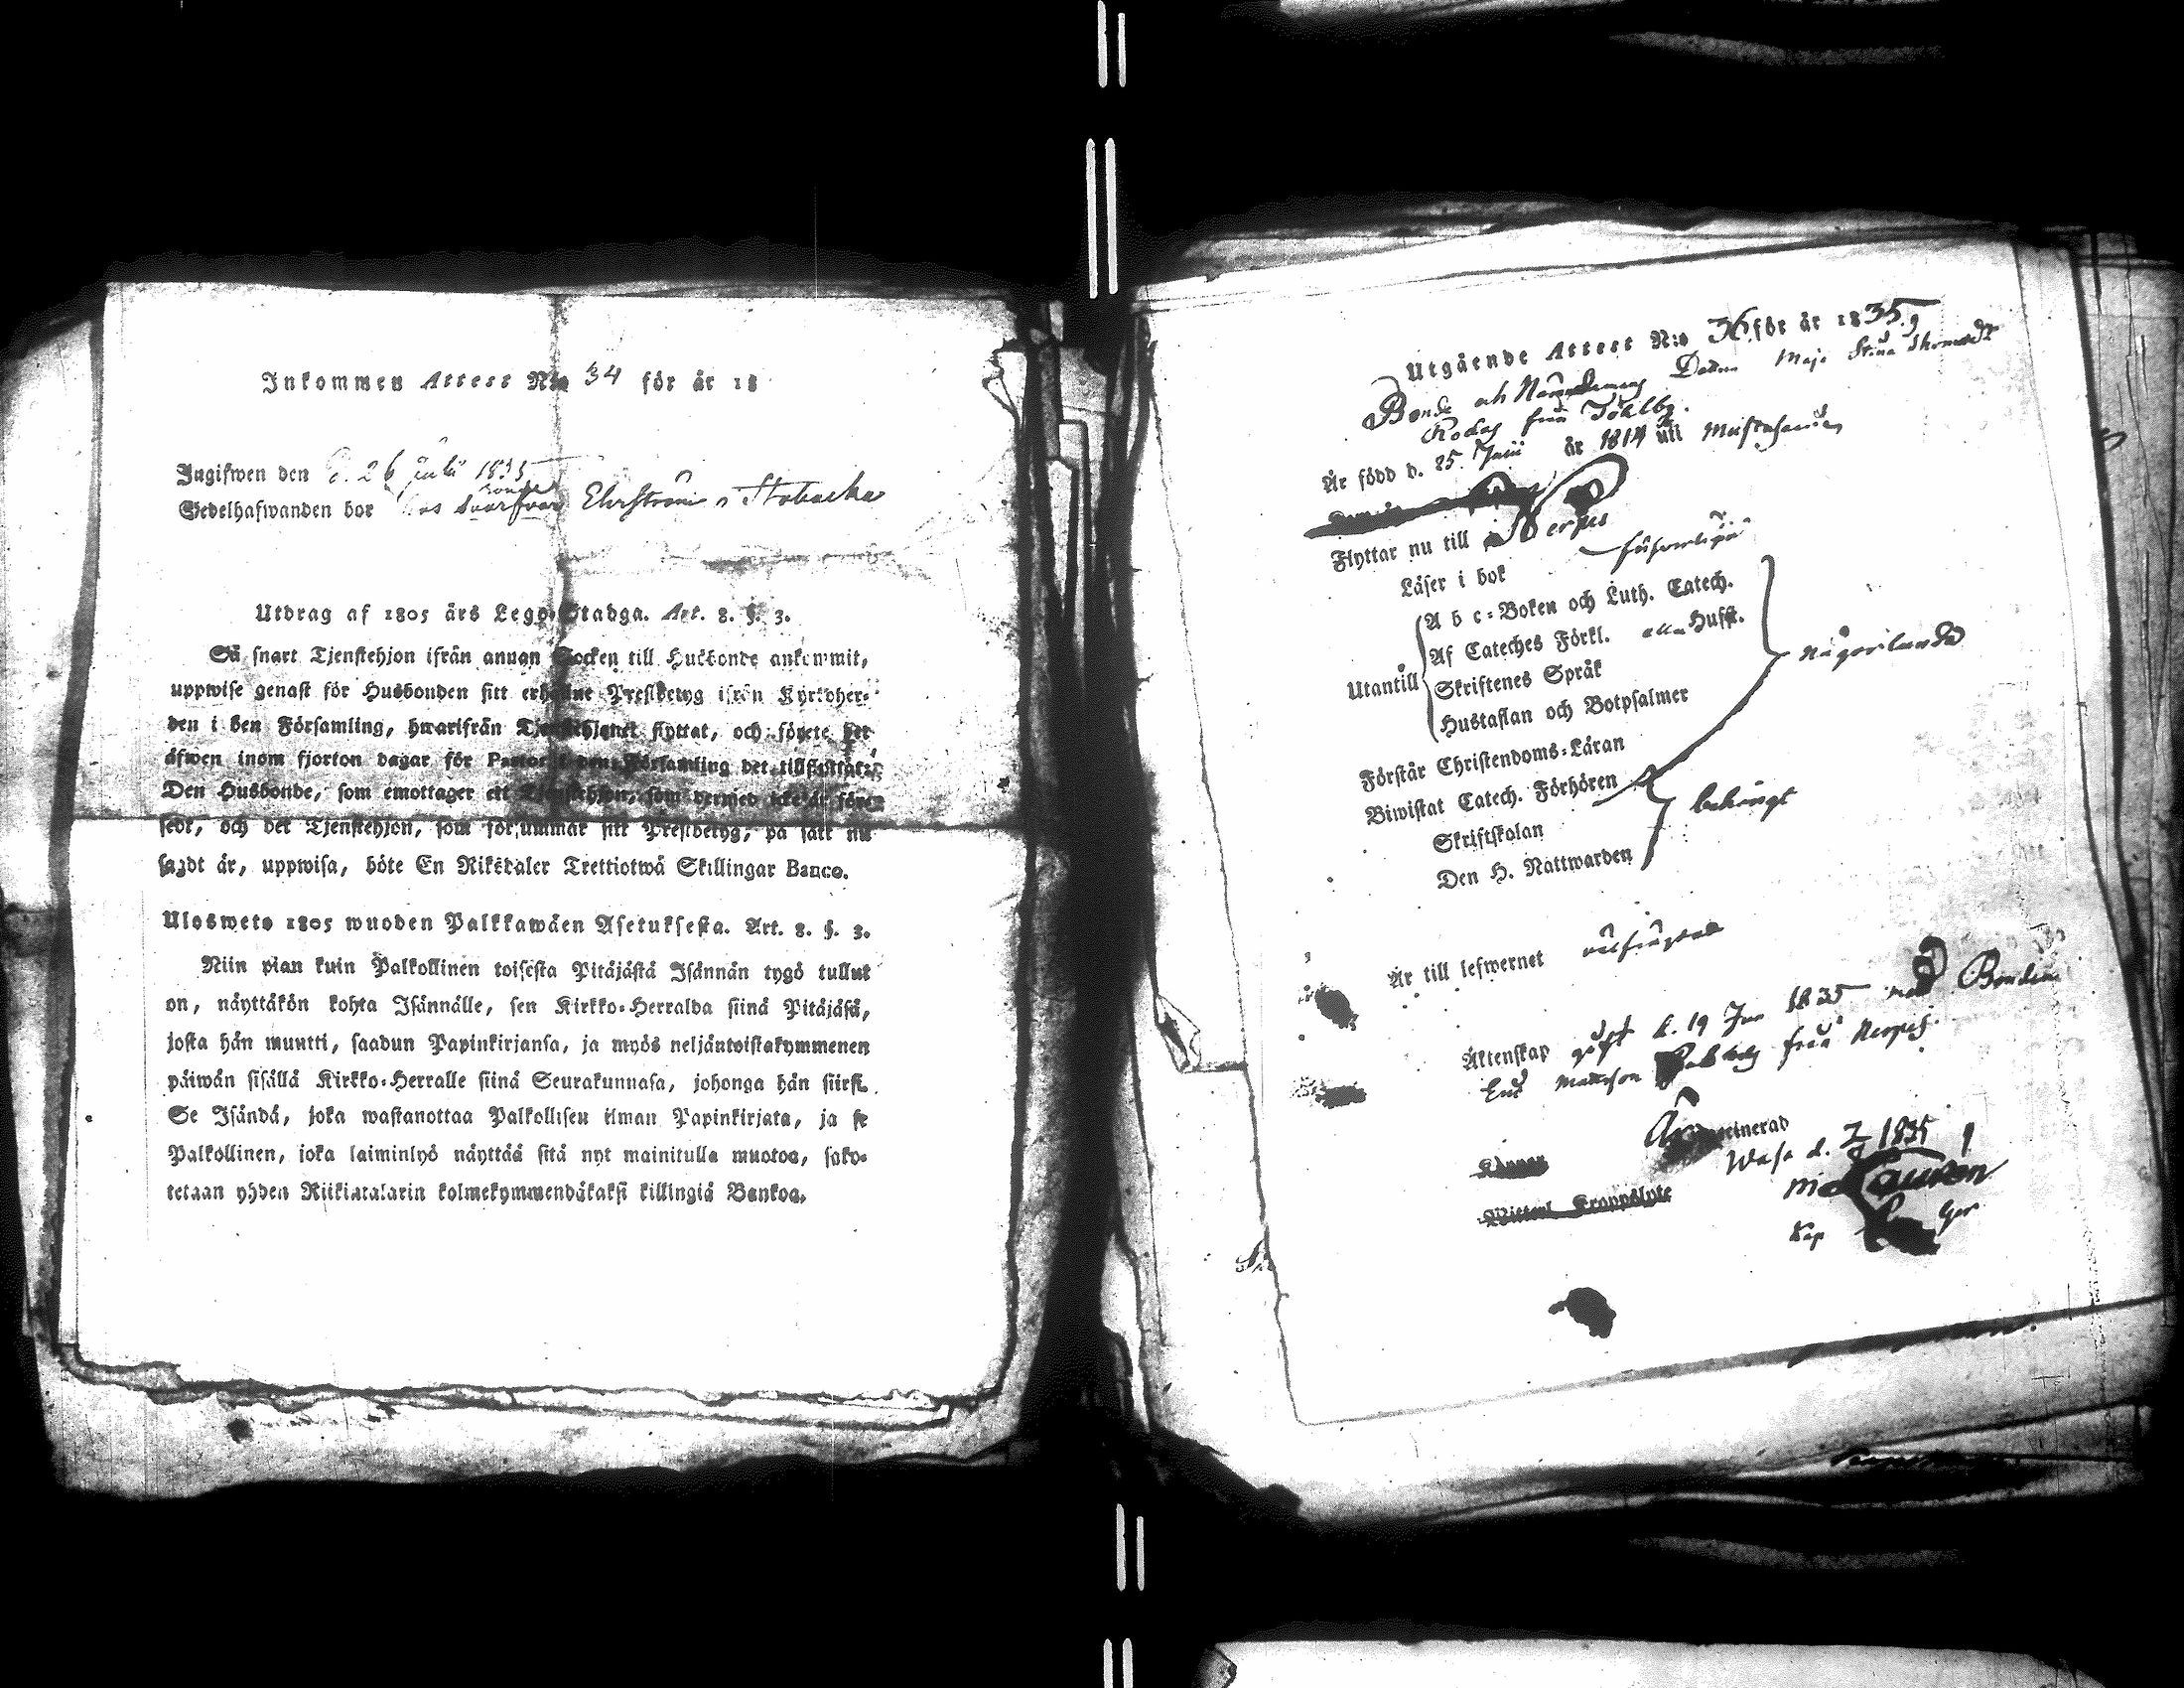 Inkommen Attest N:o 34 för år 18
Ingifwen den d. 26 Juli 1835
Sedelhafwanden bor hos Ehrström
Utdrag af 1805 års Lego-Stadga. Art. 8. §. 3.
Så snart Tjenstehjon ifrån annan Socken till Husbonde ankommit,
uppwise genast för Husbonden sitt erhållne Prestbetyg ifrån Kyrkoher-
den i den Församling, hwarifrån Tjenstehjonet flyttat, och förete det
äfwen inom fjorton dagar för Pastor i den Församling det tillflyttat.
Den Husbonde, som emottager ett Tjenstehjon, som dermed icke är förs-
sedt, och det Tjenstehjon, som försummar sitt Prestbetyg, på sätt nu
sagdt är, uppwisa, böte En Riksdaler Trettiotwå Skillingar Banco.
Ulosweto 1805 wuoden Palkkawäen Asetuksesta. Art. 8. §. 3.
Niin pian kuin Palkollinen toisesta Pitäjästä Isännän tygö tullut
on, näyttäkön kohta Isännälle, sen Kirkko-Herralda siinä Pitäjäsä,
josta hän muutti, saadun Papinkirjansa, ja myös neljäntoistakymmenen
päiwän sisällä Kirkko-Herralle siinä Seurakunnasa, johonga hän siirsi.
Se Isändä, joka wastanottaa Palkollisen ilman Papinkirjata, ja se
Palkollinen, joka laiminlyö näyttää sitä nyt mainitulla muotoa, sako-
tetaan yhden Riikintalarin kolmekymmendäkaksi killingiä Bankoa.
Utgående Attest N:o 36 för år 1835
Bonde och Nämndemans Dotter Maja Stina
från
Är född d. 25 Junii år 1814 uti Mustasaari
Flyttar nu till Nerpes
Läser i bok försvarligen
A b c-Boken och Luth. Catech.
Af Cateches Förkl. Husfft.
Utantill Skriftenes Språk
Hustaflan och Botpsalmer
någorlunda
Förstår Christendoms-Läran
Biwistat Catech. Förhören
Skriftskolan
begångt
Den H. Nattwarden
Är till lefwernet välfrägdad
Äktenskap gift d. 19 Jun 1835 med Bonden
Mattsson från Nerpes.
Wasa d. 1835